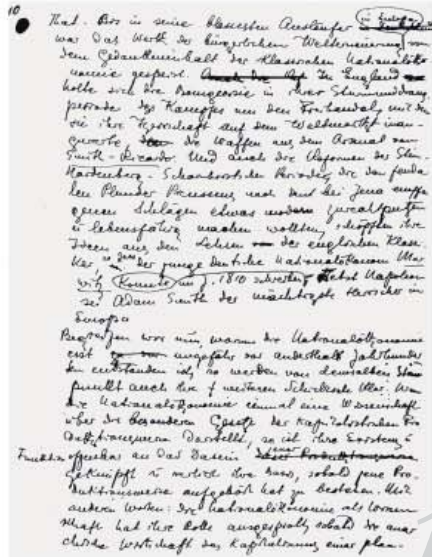 10
in Europa
Tat. Bis in seine blassesten Ausläufer
war das Werk der bürgerlichen Welterneuerung von
dem Gedankeninhalt der klassischen Nationalöko-
nomie gespeist. In England
holte sich die Bourgeoisie in ihrer Sturm und Drang
periode des Kampfes um den Freihandel, mit dem
sie ihre Herrschaft auf dem Weltmarkt inau-
gurierte, die Waffen aus dem Arsenal von
Smith-Ricardo. Und auch die Reformer der Stein-
Hardenberg-Scharnhorstschen Periode, die den feuda-
len Plunder Preussens nach den bei Jena empfan-
genen Schlägen etwas modern zurechtputzen
u lebensfähig machen wollten, schöpften ihre
Ideen aus den Lehren der englischen Klassi-
ker, so dass der junge deutsche Nationalökonom Mar-
witz 1810 schreiben konnte: Nebst Napoleon
sei Adam Smith der mächtigste Herrscher in
Europa
Begreifen wir nun, warum die Nationalökonomie
erst ungefähr vor anderthalb Jahrhunder-
ten entstanden ist, so werden von demselben Stand
punkt auch ihre weiteren Schicksale klar. Wenn
die Nationalökonomie eine Wissenschaft
über die besonderen Gesetze der kapitalistischen Pro
duktionsweise darstellt, so ist ihre Existenz u
Funktion offenbar an das Dasein
geknüpft u verliert ihre Basis, sobald jene Pro-
duktionsweise aufgehört hat zu bestehen. Mit
anderen Worten: die Nationalökonomie als Wissen
schaft hat ihre Rolle ausgespielt, sobald die anar
chische Wirtschaft des Kapitalismus einer plan-